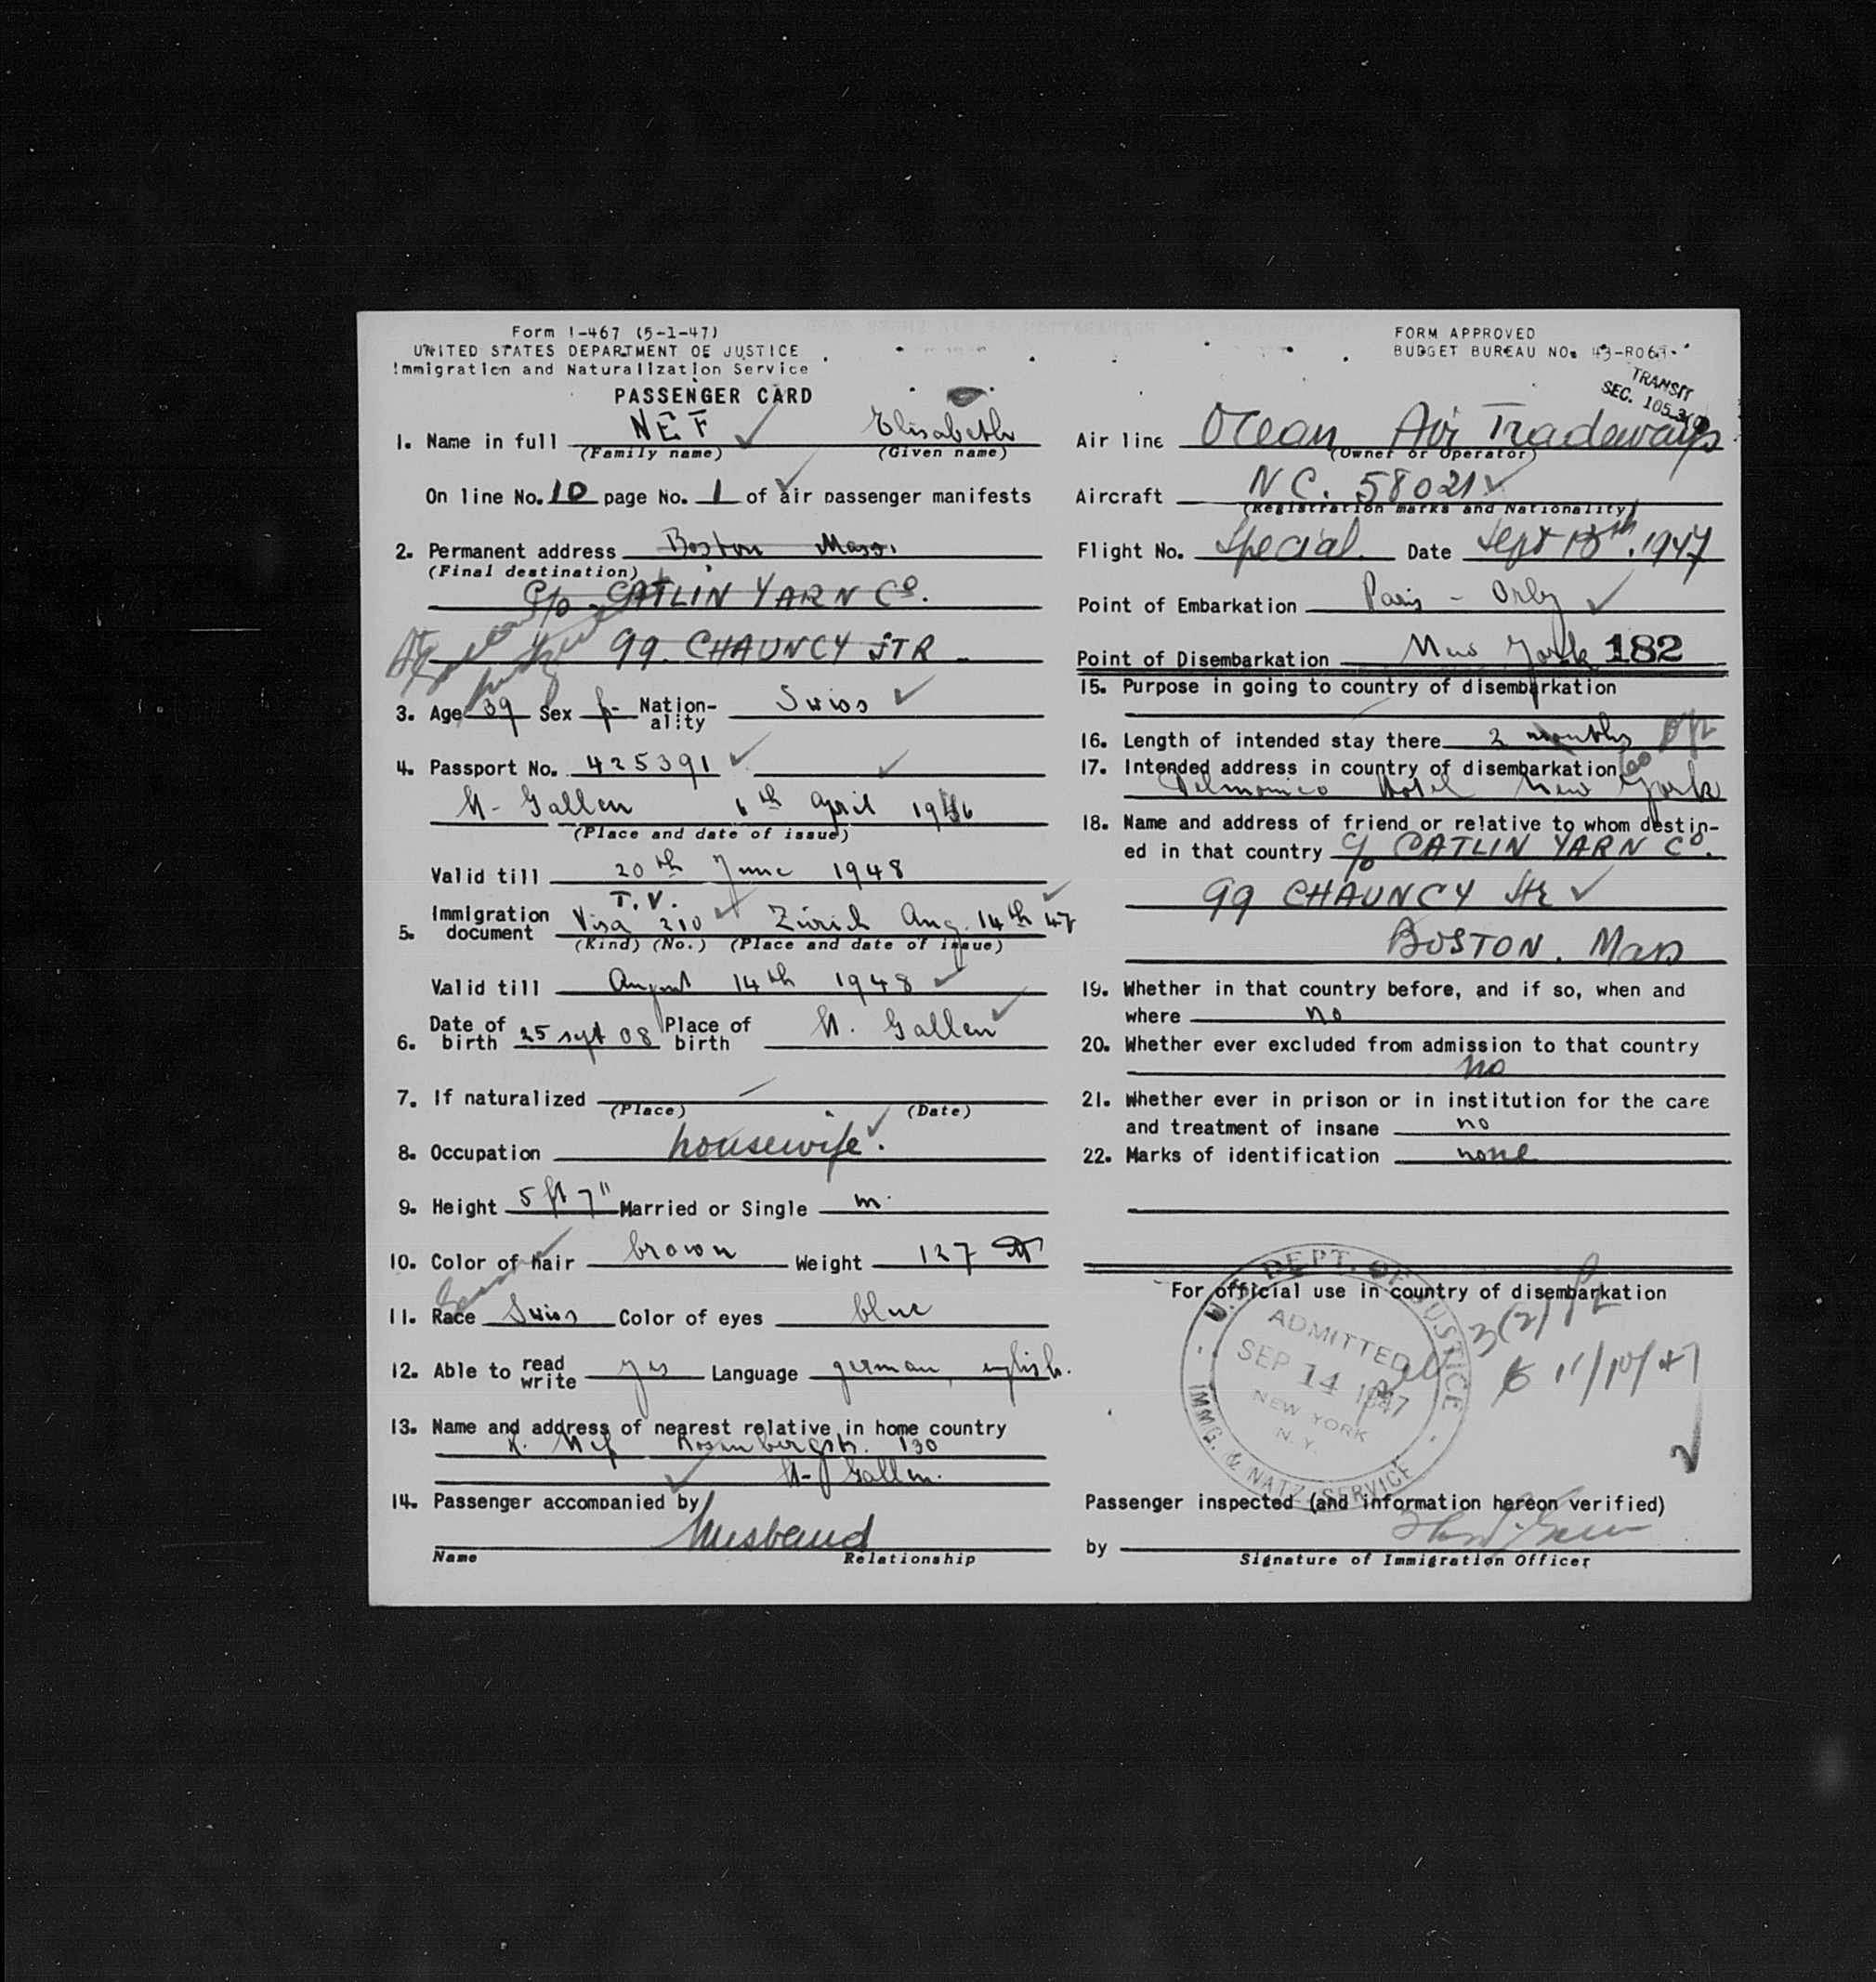 Form I-467 (5-1-47)
UNITED STATES DEPARTMENT OF JUSTICE
Immigration and Naturalization Service
PASSENGER CARD
1. Name in full NEF Elisabeth
(Family name) (Given name)
On line No. 10 page No. 1 of air passenger manifests
2. Permanent address Boston Mass.
(Final destination)
c/o CATLIN YARN Co.
99 CHAUNCY STR
3. Age 39 Sex f- Nation-ality Swiss
4. Passport No. 425391
St-Gallen 6th April 1946
(Place and date of issue)
Valid till 20th June 1948
T.V.
5. Immigration document Visa 210 Zürich Aug. 14th 47
(Kind) (No.) (Place and date of issue)
Valid till August 14th 1948
6. Date of birth 25 sept 08 Place of birth St. Gallen
7. If naturalized
(Place) (Date)
8. Occupation housewife.
9. Height 5 ft 7" Married or Single m.
10. Color of hair brown Weight 127
11. Race Swiss Color of eyes blue
12. Able to read write yes Language german, english.
13. Name and address of nearest relative in home country
K. Nef Rosenbergstr. 130
St-Gallen.
14. Passenger accompanied by
husband
Name Relationship
FORM APPROVED
BUDGET BUREAU NO. 43-R063
TRANSIT
SEC. 105.3
Air line Ocean Air Tradeways
(Owner or Operator)
Aircraft NC. 58021
(Registration marks and Nationality)
Flight No. Special Date Sept 13th. 1947
Point of Embarkation Paris - Orly
Point of Disembarkation New York 182
15. Purpose in going to country of disembarkation
16. Length of intended stay there 2 months
17. Intended address in country of disembarkation
Delmonico Hotel New York
18. Name and address of friend or relative to whom destin-
ed in that country c/o CATLIN YARN Co.
99 CHAUNCY Str
BOSTON. Mass
19. Whether in that country before, and if so, when and
where no
20. Whether ever excluded from admission to that country
no
21. Whether ever in prison or in institution for the care
and treatment of insane no
22. Marks of identification none
For official use in country of disembarkation
U.S. DEPT. OF JUSTICE
ADMITTED
SEP 14 1947
NEW YORK
N.Y.
IMMG. & NATZ. SERVICE
3(2)
11/10/47
Passenger inspected (and information hereon verified)
by
Signature of Immigration Officer